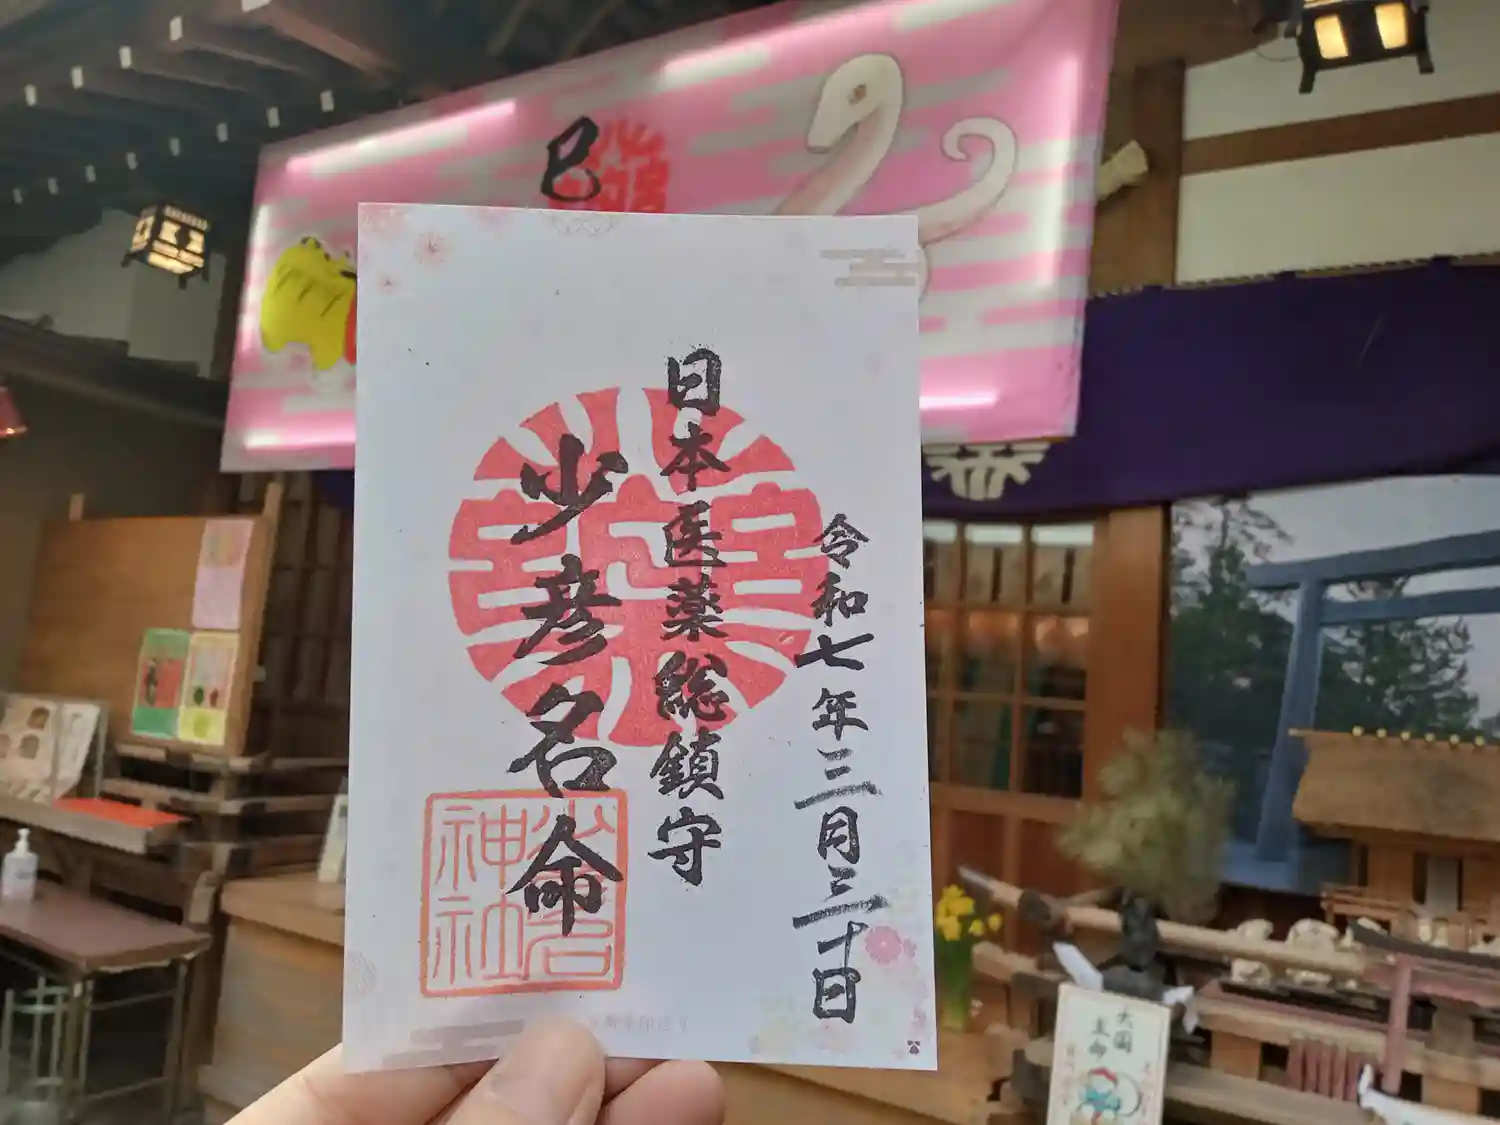 巳
令和七年三月三十日
日本医薬総鎮守
少彦名命
神社
大国
主命